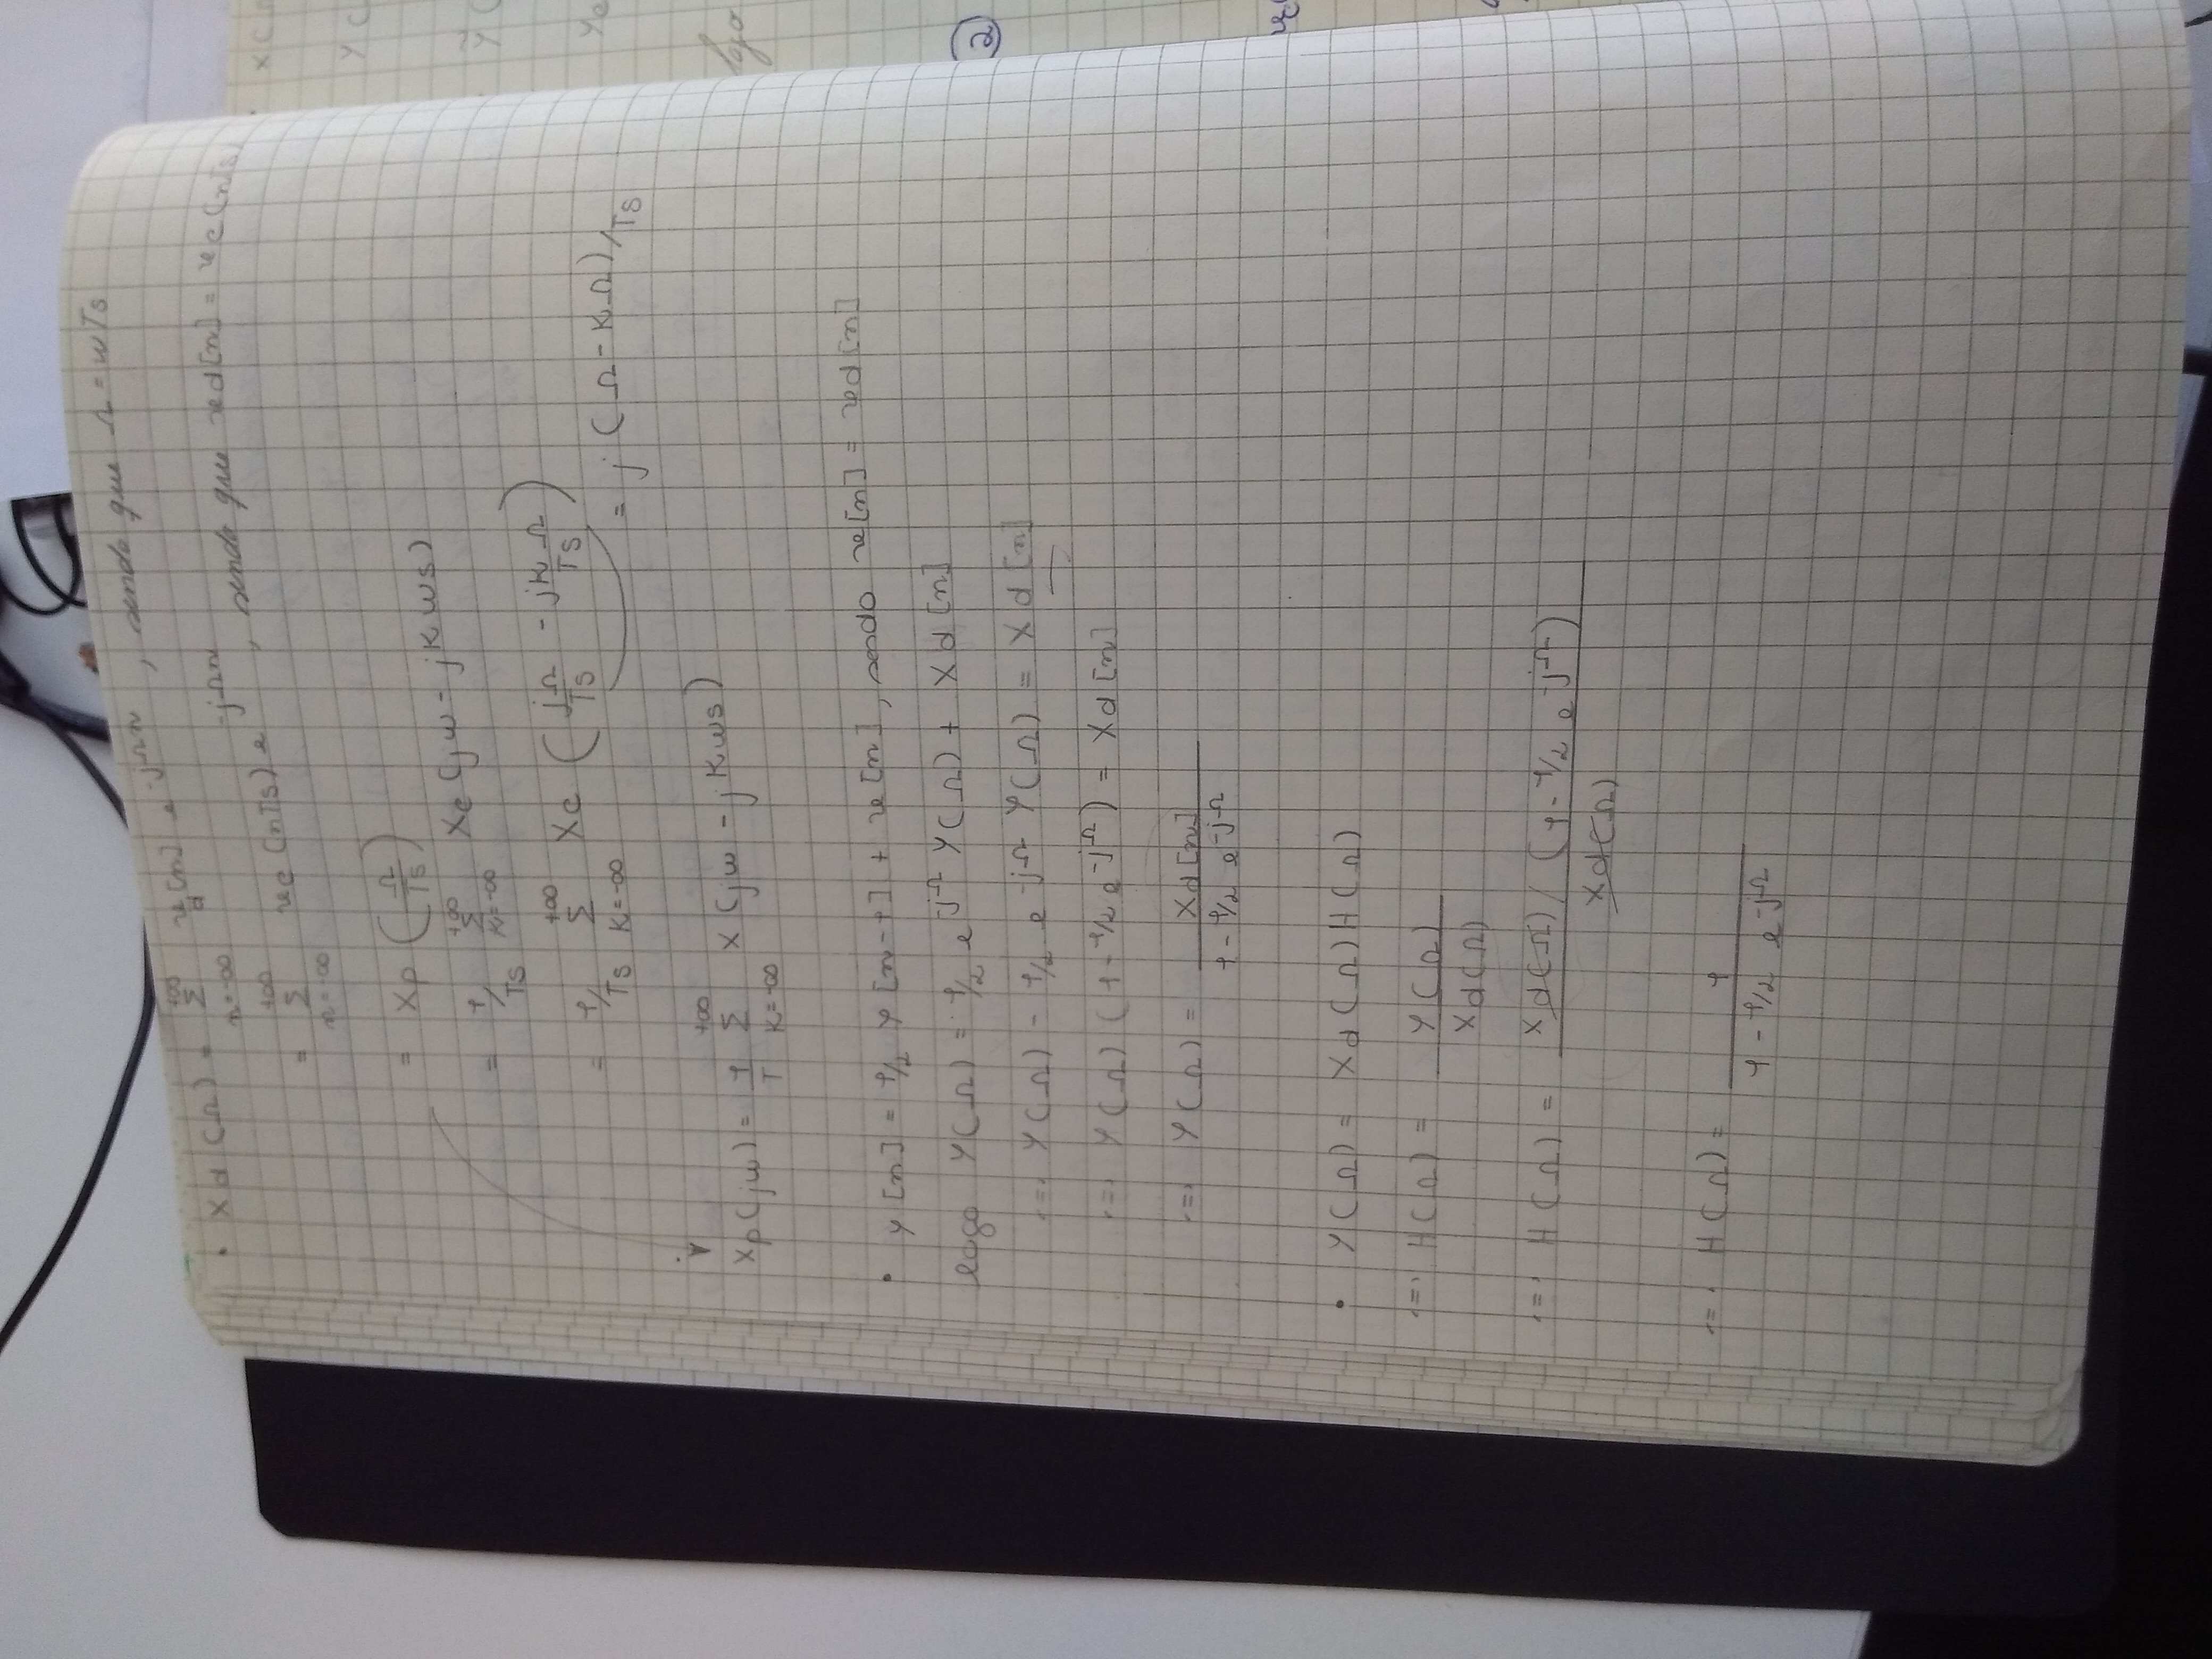 • Xd(Ω) = +∞ Σ n=-∞ xd[n] e^-jΩn , sendo que Ω = wTs
= +∞ Σ n=-∞ xc(nTs) e^-jΩn , sendo que xd[n] = xc(nTs)
= Xp (Ω/Ts)
= 1/Ts +∞ Σ k=-∞ Xc(jw - jkws)
= 1/Ts +∞ Σ k=-∞ Xc (jΩ/Ts - jkΩ/Ts) = j(Ω - kΩ)/Ts
Xp(jw) = 1/T +∞ Σ k=-∞ X(jw - jkws)
• y[n] = 1/2 y[n-1] + x[n], sendo x[n] = xd[n]
logo Y(Ω) = 1/2 e^-jΩ Y(Ω) + Xd[n]
(=) Y(Ω) - 1/2 e^-jΩ Y(Ω) = Xd[n]
(=) Y(Ω) (1 - 1/2 e^-jΩ) = Xd[n]
(=) Y(Ω) = Xd[n] / 1 - 1/2 e^-jΩ
• Y(Ω) = Xd(Ω) H(Ω)
(=) H(Ω) = Y(Ω) / Xd(Ω)
(=) H(Ω) = Xd(Ω) / (1 - 1/2 e^-jΩ) / Xd(Ω)
(=) H(Ω) = 1 / 1 - 1/2 e^-jΩ
Y(
logo
2